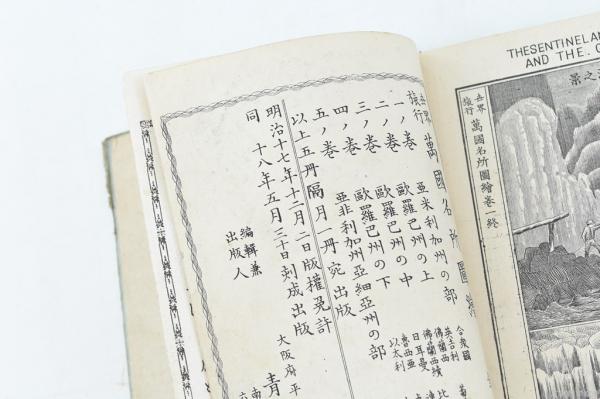 THE SENTINEL AN
AND THE. C
之景
世界
旅行
萬國名所圖繪卷一終
世界
旅行
萬國名所圖繪
一ノ卷 亞米利加州の部
二ノ卷 歐羅巴州の上
三ノ卷 歐羅巴州の中
四ノ卷 歐羅巴州の下
五ノ卷 亞非利加州亞細亞州の部
以上五冊隔月一冊宛出版
明治十七年十二月二日版權免許
同 十八年五月三十日刻成出版
編輯兼
出版人
大阪府平
青
合衆國
英吉利
佛蘭西
佛蘭西續
日耳曼
魯西亞
以太利